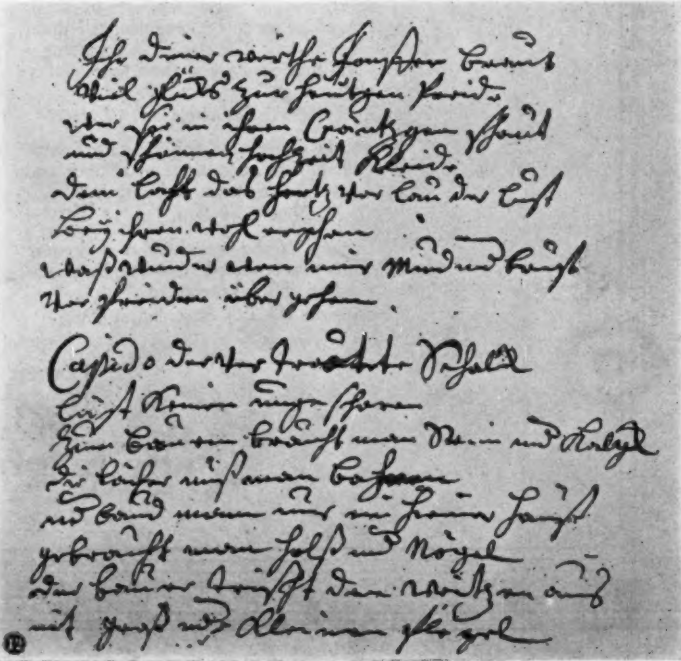 Ihr Diener werthe Jungfer Braut
Viel Glücks zur heutgen Freude
wer sie in ihren Cräntzgen schaut
und schönen Hochzeit Kleide
dem lacht das Hertz vor lauter Lust
bey ihrem wohl ergehen
waß wunder wenn mir Mund und brust
vor freuden übergehen.
Cupido der vertraute Schalck
läst Keinen ungeschoren
zum bauen braucht man Stein und Kalck
die löcher muß man bohren
und baud mann nur ein Hennen Hauß
gebraucht man Holß und Nägel
der bauer drischt den weitzen aus
mit groß und Kleinen flegel
12